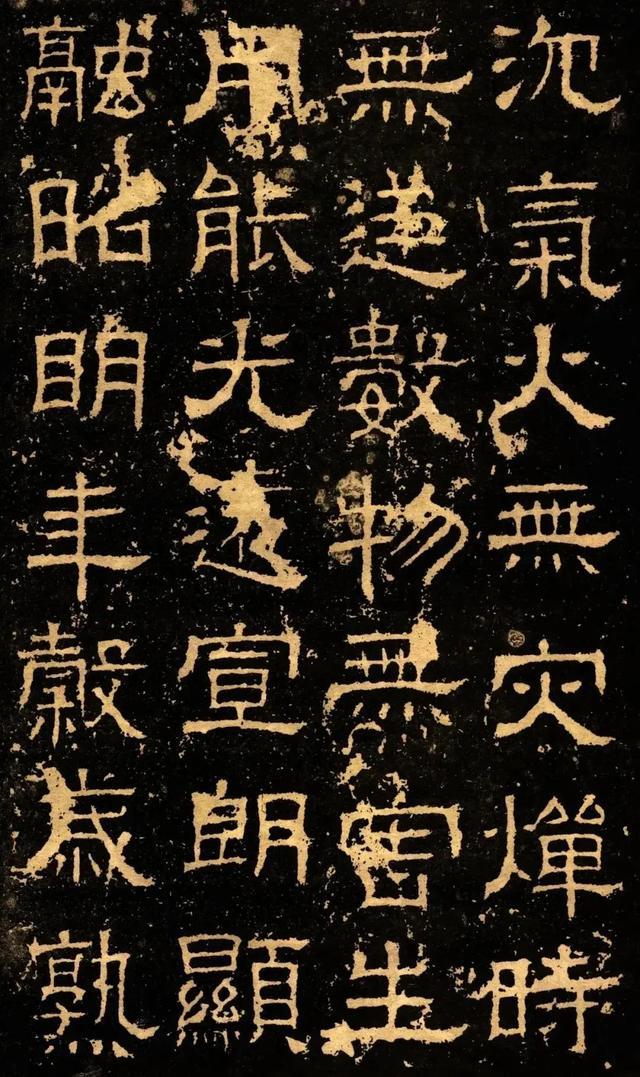 沉氣火無灾燀時
無逆數物無害生
用能光遠宣朗顯
融昭眀年穀歲熟